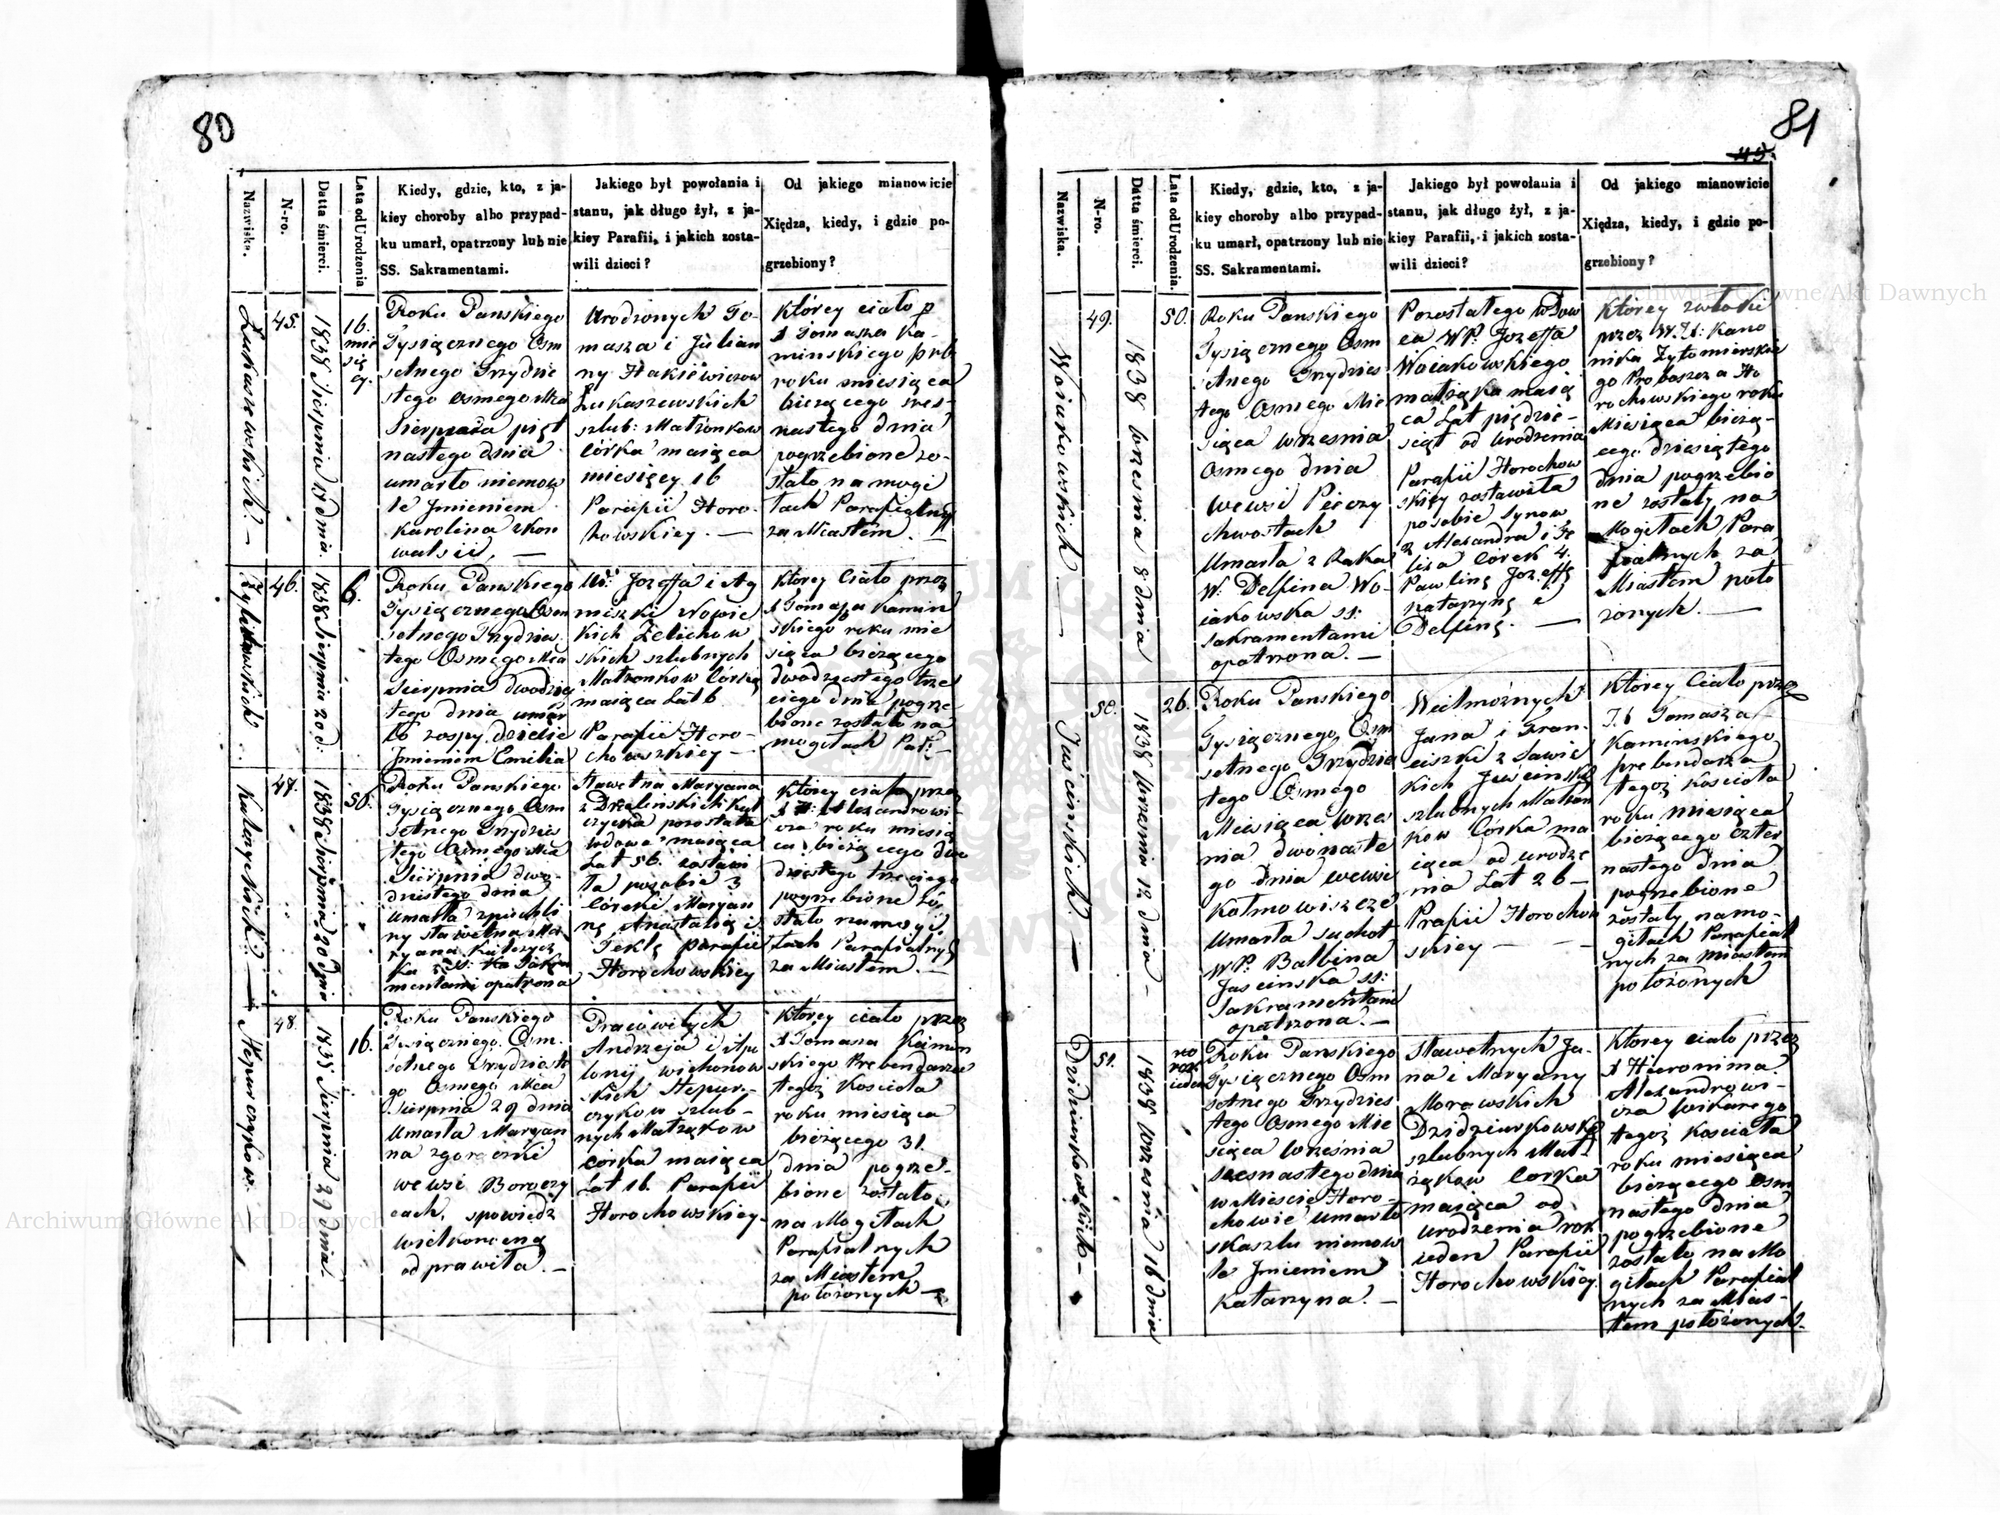 80
Nazwiska.
N-ro.
Datta śmierci.
Lata od Urodzenia
Kiedy, gdzie, kto, z ja-
kiey choroby albo przypad-
ku umarł, opatrzony lub nie
SS. Sakramentami.
Jakiego był powołania i
stanu, jak długo żył, z ja-
kiey Parafii, i jakich zosta-
wili dzieci?
Od jakiego mianowicie
Xiędza, kiedy, i gdzie po-
grzebiony?
Łukaszewskich —
45.
1838 Sierpnia 15 dnia.
16.
mie
się
cy.
Roku Panskiego
Tysiącznego Osm
setnego Trzydzie
stego osmego Mca
Sierpnia pięt
nastego dnia
umarło niemow
le Jmieniem
Karolina z kon
wulsii, —
Urodzonych To-
masza i Julian
ny Hakiewiczow
Łukaszewskich
szlub: Małżonkow
Córka maiąca
miesięcy 16
Parafii Horo-
howskiey. —
Którey ciało p
X Tomasza Ka-
minskiego prb:
roku miesiąca
bieżącego szes-
nastego dnia
pogrzebione zo-
stało na mogi
łach Parafialnych
za Miastem. —
46.
1838 Sierpnia 20 d:
6.
Roku Panskiego
Tysiącznego Osm
setnego Trzydzies
tego Osmego Mca
Sierpnia dwudzies
tego dnia umar
ło z ospy dziecie
Jmieniem Emilia
Ur: Jozeffa i Ag
niszki
kich Zelichow
skich szlubnych
Małżonkow Córka
maiąca Lat 6
Parafii Horo-
chowskiey —
Ktorey Ciało przez
X Tomasza Kamin
skiego roku mie
siąca bieżącego
dwudziestego trze
ciego dnia pogrze-
bione zostało na
mogiłach Par: —
47.
1838 Sierpnia 20 dnia
50.
Roku Panskiego
Tysiącznego Osm
setnego Trzydzies
tego Osmego Mca
Sierpnia dwu-
dziestego dnia
Umarła z puchli
ny sławetna Ma-
ryana
Sakra
mentami opatrzona
Sławetna Maryana
z
pozostała
wdowa maiąca
Lat 56. zostawi
ła po sobie 3
Córeki Maryan
nę Anastazią i
Teklę parafii
Horochowskiey
Ktorey ciało przez
X H: Alexandrowi-
cza roku miesią
ca bieżącego dwu
dziestego trzeciego
pogrzebione zo
stało na mogi
łach Parafialnych
za Miastem. —
48.
1838 Sierpnia 29 dnia
16.
Roku Panskiego
Tysiącznego Osm-
setnego Trzydzieste
go Osmego Mca
Sierpnia 29 dnia
Umarła Maryan
na z goraczki
we wsi Boroczy
cach, spowiedz
wielkonocną
odprawiła. —
Pracowitych
Andrzeja i Apo
lonij
skich Stepur-
czykow szlub-
nych Małżąkow
córka maiąca
Lat 16. Parafii
Horochowskiey.
Którey ciało przez
X Tomasza Kamin
skiego Prebendarza
tegoż Koscioła
roku miesiąca
bieżącego 31.
dnia pogrze-
bione zostało
na Mogiłach
Parafialnych
za Miastem
położonych —
81
45.
Nazwiska.
N-ro.
Datta śmierci.
Lata od Urodzenia.
Kiedy, gdzie, kto, z ja-
kiey choroby albo przypad-
ku umarł, opatrzony lub nie
SS. Sakramentami.
Jakiego był powołania i
stanu, jak długo żył, z ja-
kiey Parafii, i jakich zosta-
wili dzieci?
Od jakiego mianowicie
Xiędza, kiedy, i gdzie po-
grzebiony?
Woiakowskich —
49.
1838 Września 8 dnia
50.
Roku Panskiego
Tysiącznego Osm
setnego Trzydzies
tego Osmego Mie
siąca wrzesnia
Osmego dnia
we wsi Pieczy
chwostach
Umarła z Raka
W: Delfina Wo-
iakowska SS:
Sakramentami
opatrzona. —
Pozostałego Wdow
ca WP. Jozeffa
Woiakowskiego
małżąka maią
ca Lat pięćdzie-
siąt od Urodzenia
Parafii Horochow
skiey zostawiła
po sobie Synow
2 Alexandra i Fe
lixa Córek 4.
Paulinę Jozeffę
Katarzynę i
Delfinę. —
Ktorey zwłoki
przez W. X: Kano
nika Żytomierskie
go Proboszcza Ho
rochowskiego roku
Miesiąca bieżą-
cego dziesiątego
dnia pogrzebio
ne zostały na
Mogiłach Para
fialnych za
Miastem poło
żonych. —
Juścinskich —
50.
1838 Wrzesnia 12 dnia —
26.
Roku Panskiego
Tysiącznego Osm
setnego Trzydzies
tego Osmego
Miesiąca wrzes
nia dwónaste
go dnia we wsi
Kołmowiszcze
Umarła suchot
WP. Balbina
Juscinska SS:
Sakramentami
opatrzona. —
Wielmożnych
Jana i Fran-
ciszki z Sawic
kich Juścinskich
szlubnych Małżon
kow Córka ma
iąca od urodze
nia Lat 26 —
Prafii Horochow
skiey —
Ktorey Ciało przez
X Tomasza
Kaminskiego
prebendarza
tegoż Kościoła
roku miesiąca
bieżącego czter
nastego dnia
pogrzebione
zostały na mo-
giłach Parafial
nych za miastem
położonych
Dzidziurkowskich —
51.
1838 Wrzesnia 16 dnia
no
rok
ieden
Roku Panskiego
Tysiącznego Osm
setnego Trzydzies
tego Osmego Mie
siąca Września
szesnastego dnia
w Mieście Horo-
chowie umarło
z kaszlu niemow
le Jmieniem
Katarzyna. —
Sławetnych Ja-
na i Maryany
Morawskich
Dzidziurkowskich
szlubnych Mał-
żąkow Corka
maiąca od
urodzenia rok
ieden Parafii
Horochowskiey.
Ktorey ciało przez
X Hieronima
Alexandrowi-
cza wikarego
tegoż Kościoła
roku miesiąca
bieżącego osm
nastego dnia
pogrzebione
zostało na Mo
giłach Parafial
nych za Mias-
tem położonych.
Archiwum Główne Akt Dawnych
Archiwum Główne Akt Dawnych